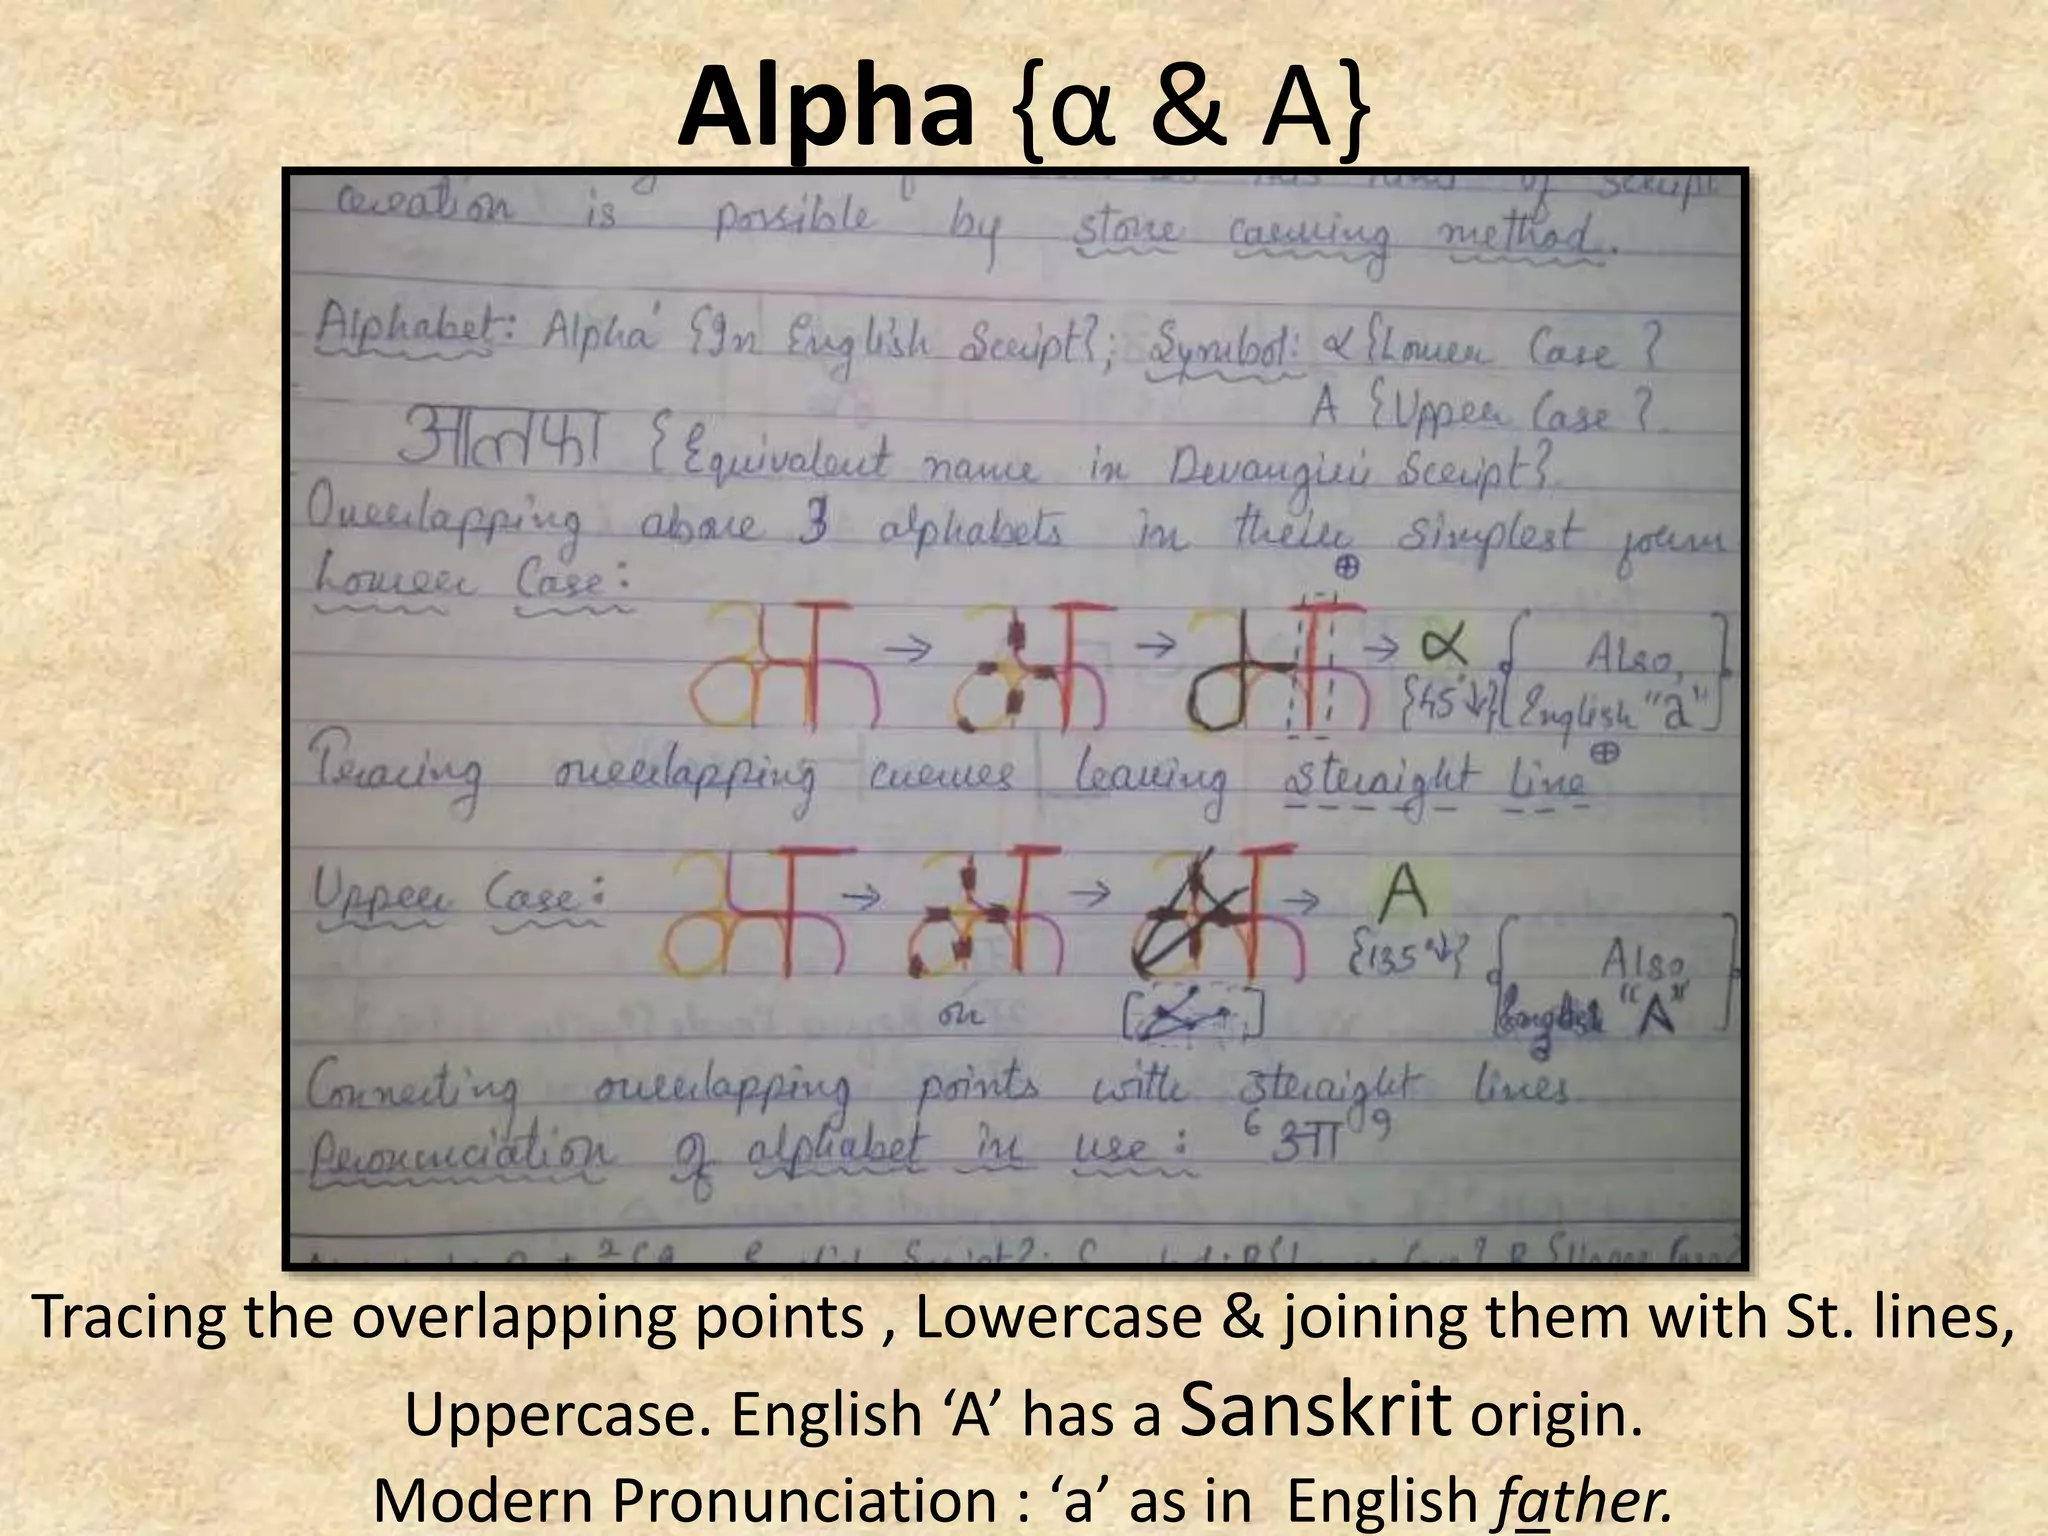 Alpha {α & A}
creation is possible by stone carving method.
Alphabet: Alpha {In English Script}; Symbol: α {Lower Case}
A {Upper Case}
आलफा {Equivalent name in Devangiri Script}
Overlapping above 3 alphabets in their simplest form
Lower Case: → → → α { Also,
{45°↓} English "a" }
Tracing overlapping curves leaving straight line ⊕
Upper Case: → → → A
{135°↓} { Also
or English "A" }
Connecting overlapping points with straight lines
Pronunciation of alphabet in use: 'आ'
Tracing the overlapping points , Lowercase & joining them with St. lines,
Uppercase. English ‘A’ has a Sanskrit origin.
Modern Pronunciation : ‘a’ as in English father.